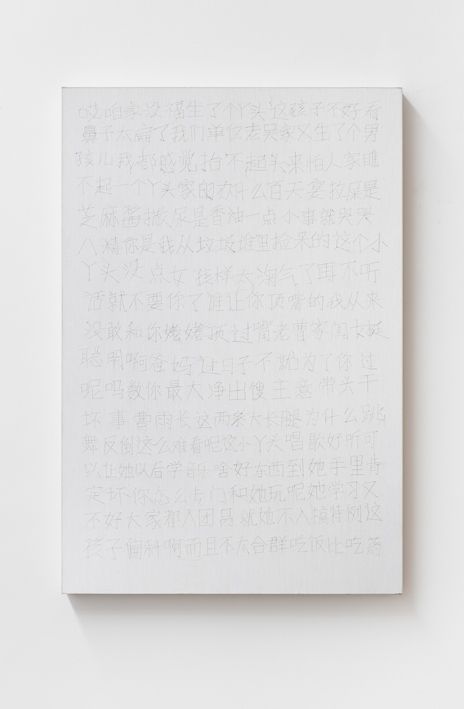 咱家没福生了个丫头这孩子不好看
鼻子太扁了我们单位老吴家又生了个男
孩儿我都感觉抬不起头来怕人家瞧
不起一个丫头家的有什么百天宴拉屎是
芝麻酱撒尿是香油一点小事就哭哭
你是我从垃圾堆里捡来的这个小
丫头没点女孩样太淘气了耳不听
话就不要你了谁让你顶嘴的我从来
没敢和你姥姥顶过嘴老曹家闺女挺
聪明啊爸妈让日子不为了你过
呢吗教你最大净出馊主意带头干
坏事曹雨长这两条大长腿为什么跳
舞反倒这么难看呢这小丫头唱歌好听可
以让她以后学 啥好东西到她手里肯
定坏你怎么专门和她玩呢她学习又
不好大家都入团哥就她不入搞特殊这
孩子偏科啊而且不太合群吃饭比吃药